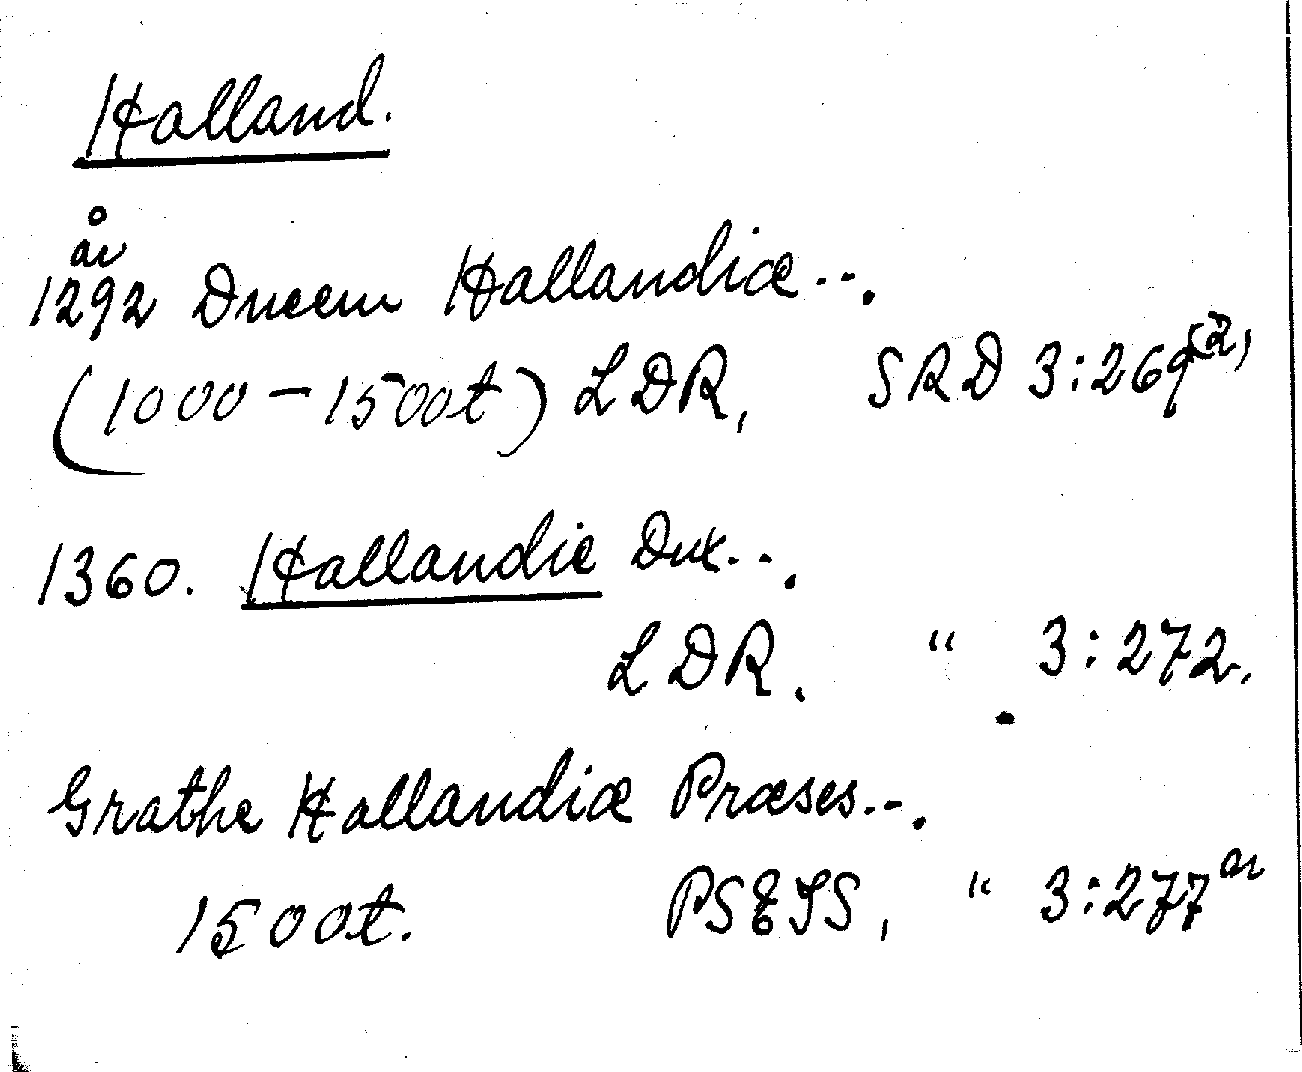 Halland.
år
1292 Ducem Hallandiæ...
(1000-1500t) LDR, SRD 3:269(2)
1360. Hallandie Dux...
LDR. " 3:272.
Grathe Hallandiæ Præses...
1500t. PS&JS, " 3:277